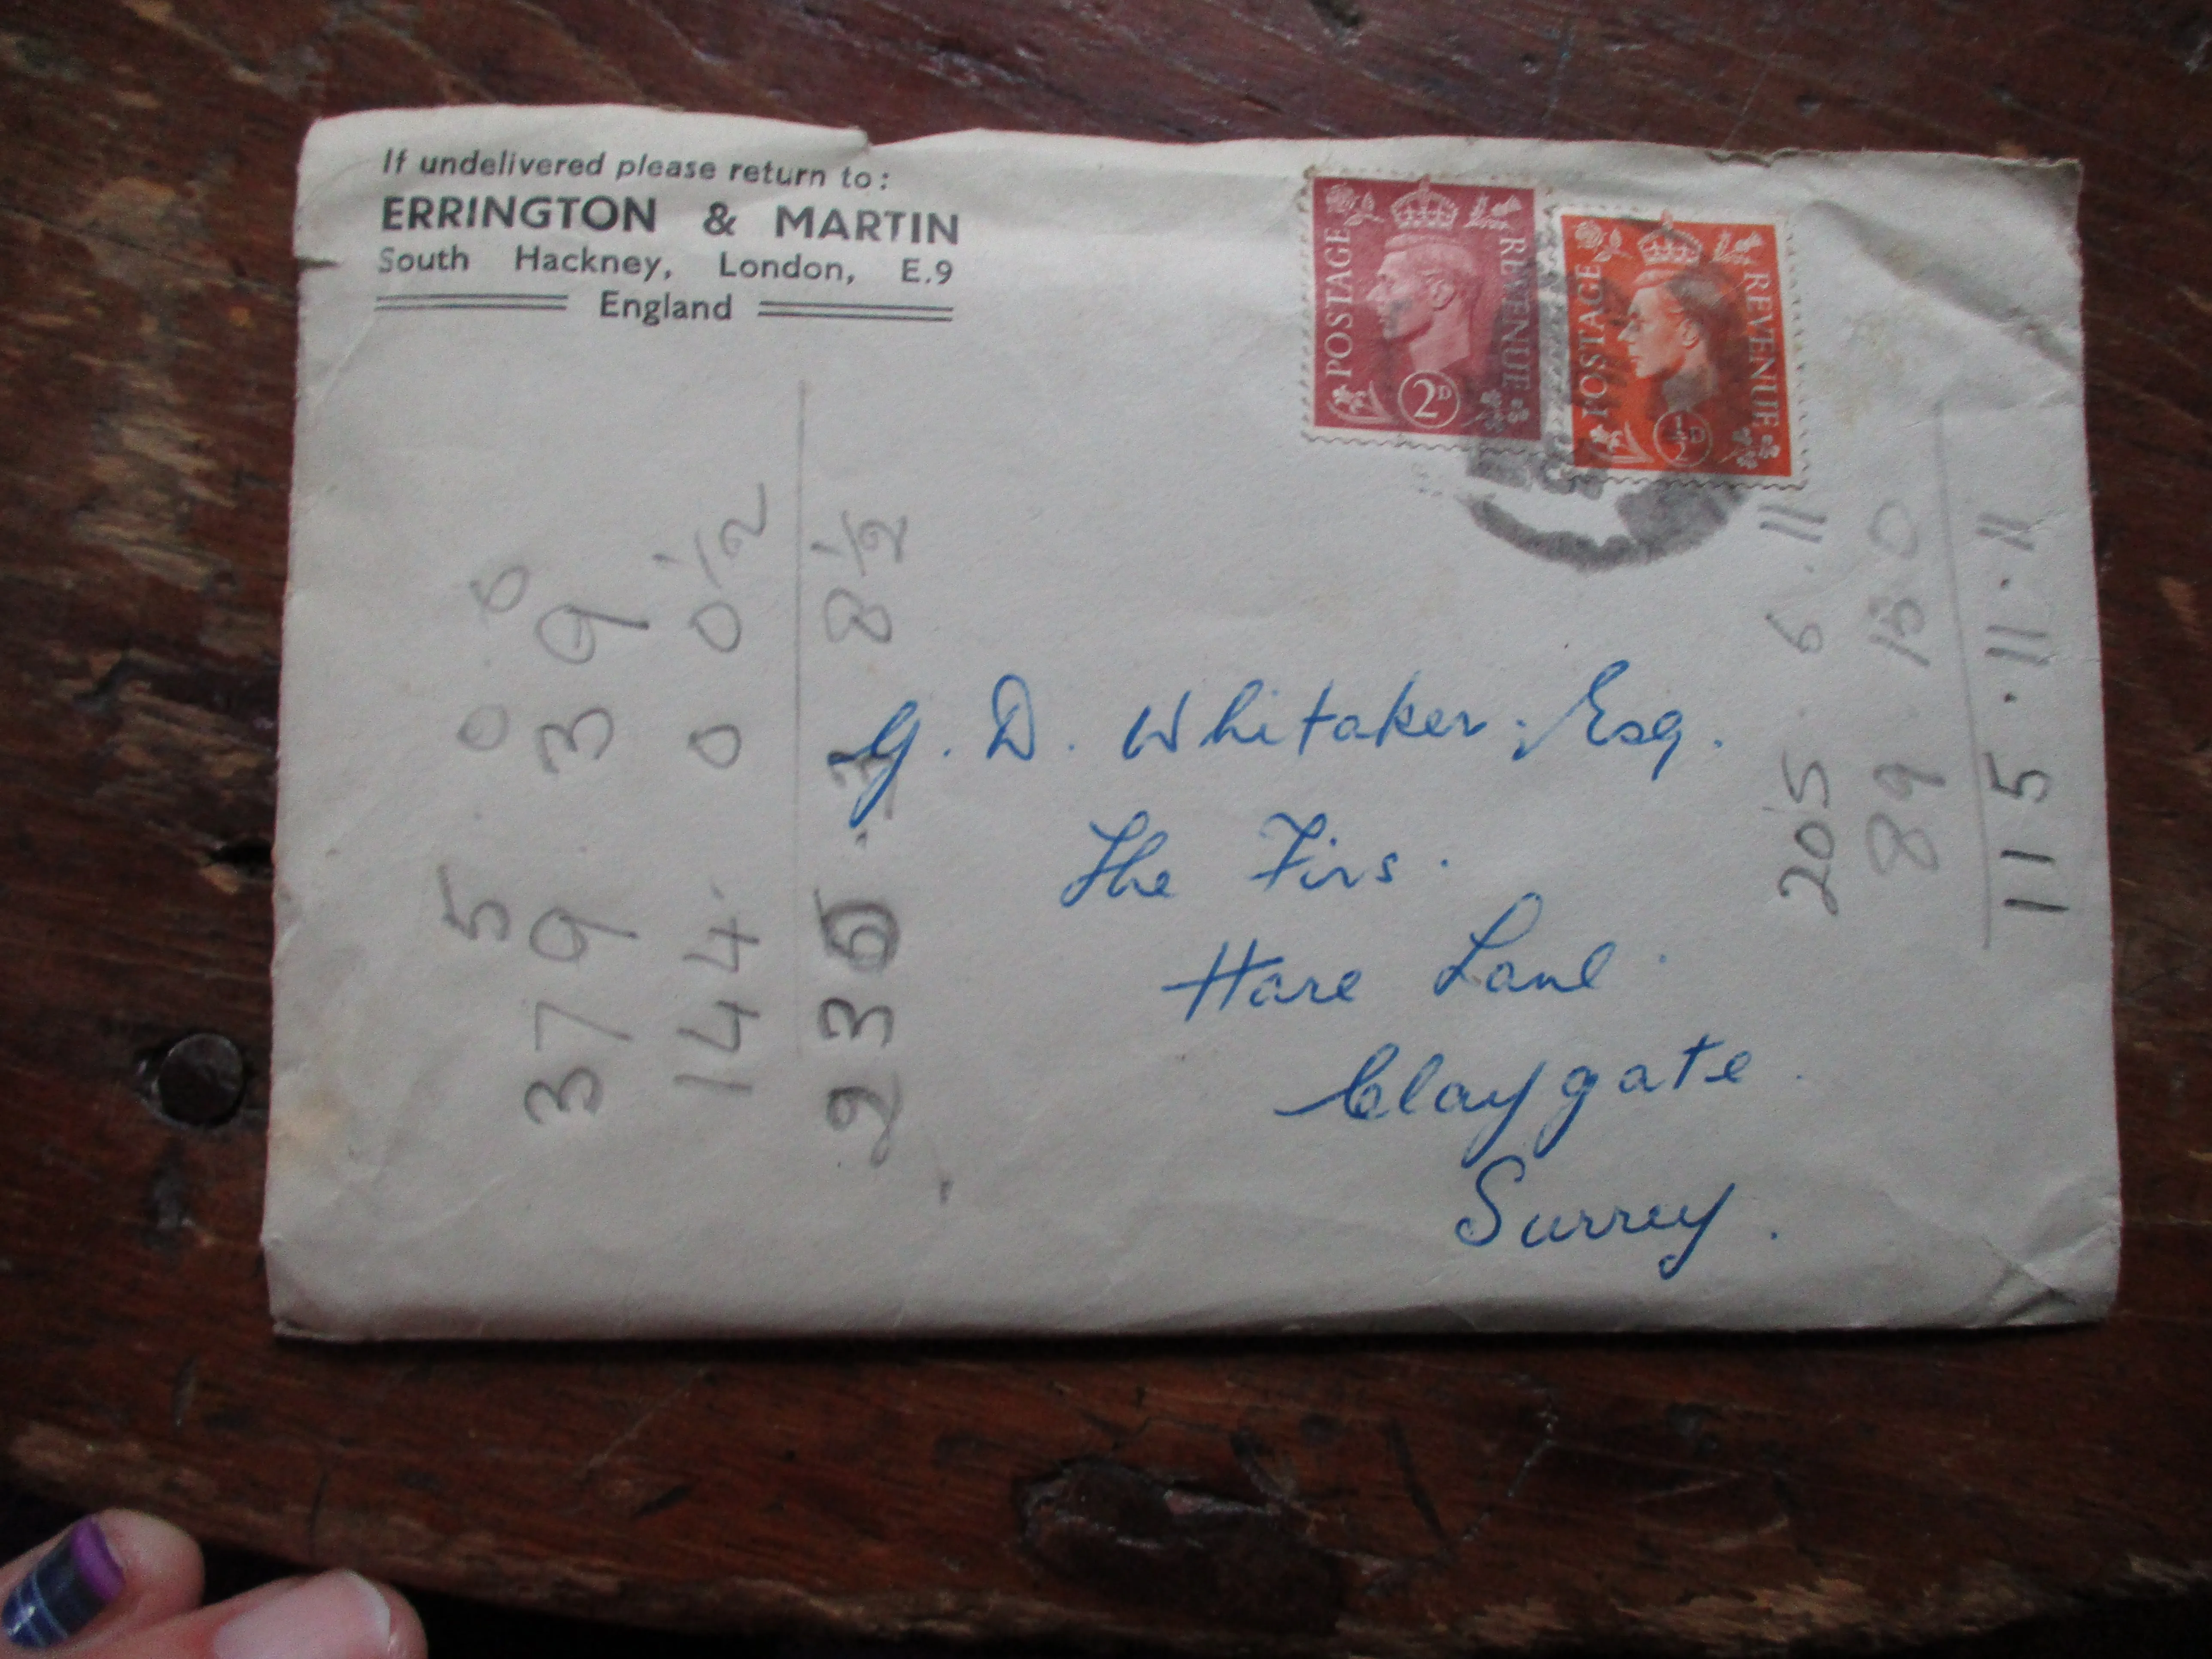 If undelivered please return to:
ERRINGTON & MARTIN
South Hackney, London, E.9
England
POSTAGE REVENUE
2D
POSTAGE REVENUE
½D
G. D. Whitaker. Esq.
The Firs.
Hare Lane.
Claygate.
Surrey.
5 0 0
379 3 9
144 0 0½
235 . 3 8½
205 6 . 11
89 0
115 . 11 . 11